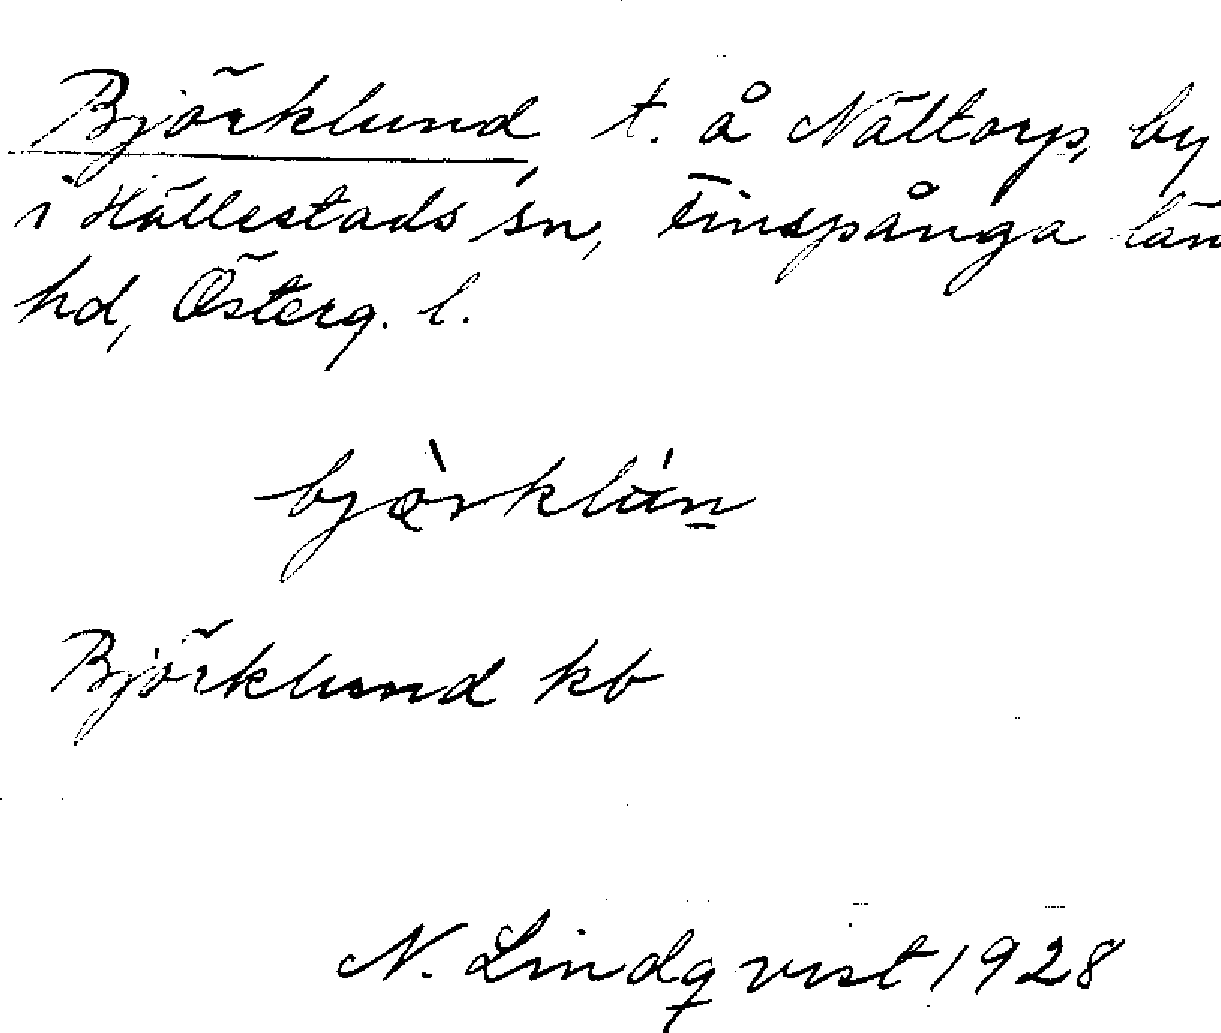 Björklund, t. å Nältorp, by
i Hällestads sn, Finspånga län
hd, Österg. l.
Björklund kb
N. Lindqvist 1928